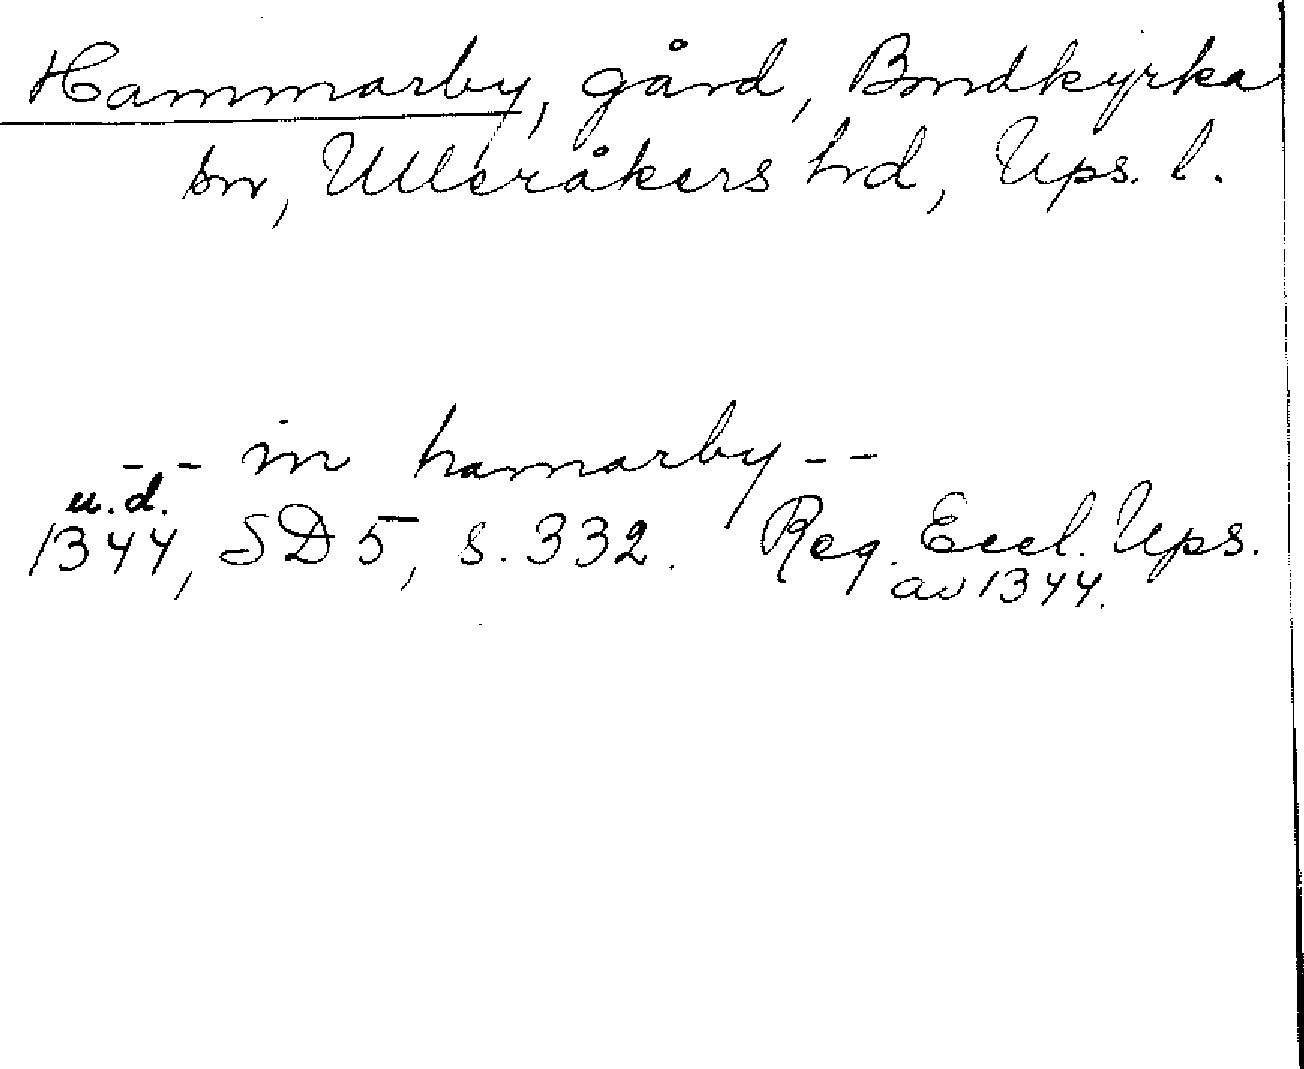 Hammarby, gård, Bondkyrka
sn, Ulleråkers hd, Ups. l.
-- in hamarby --
u.d.
1344, SD 5, s. 332. Reg. Eccl. Ups.
av 1344.